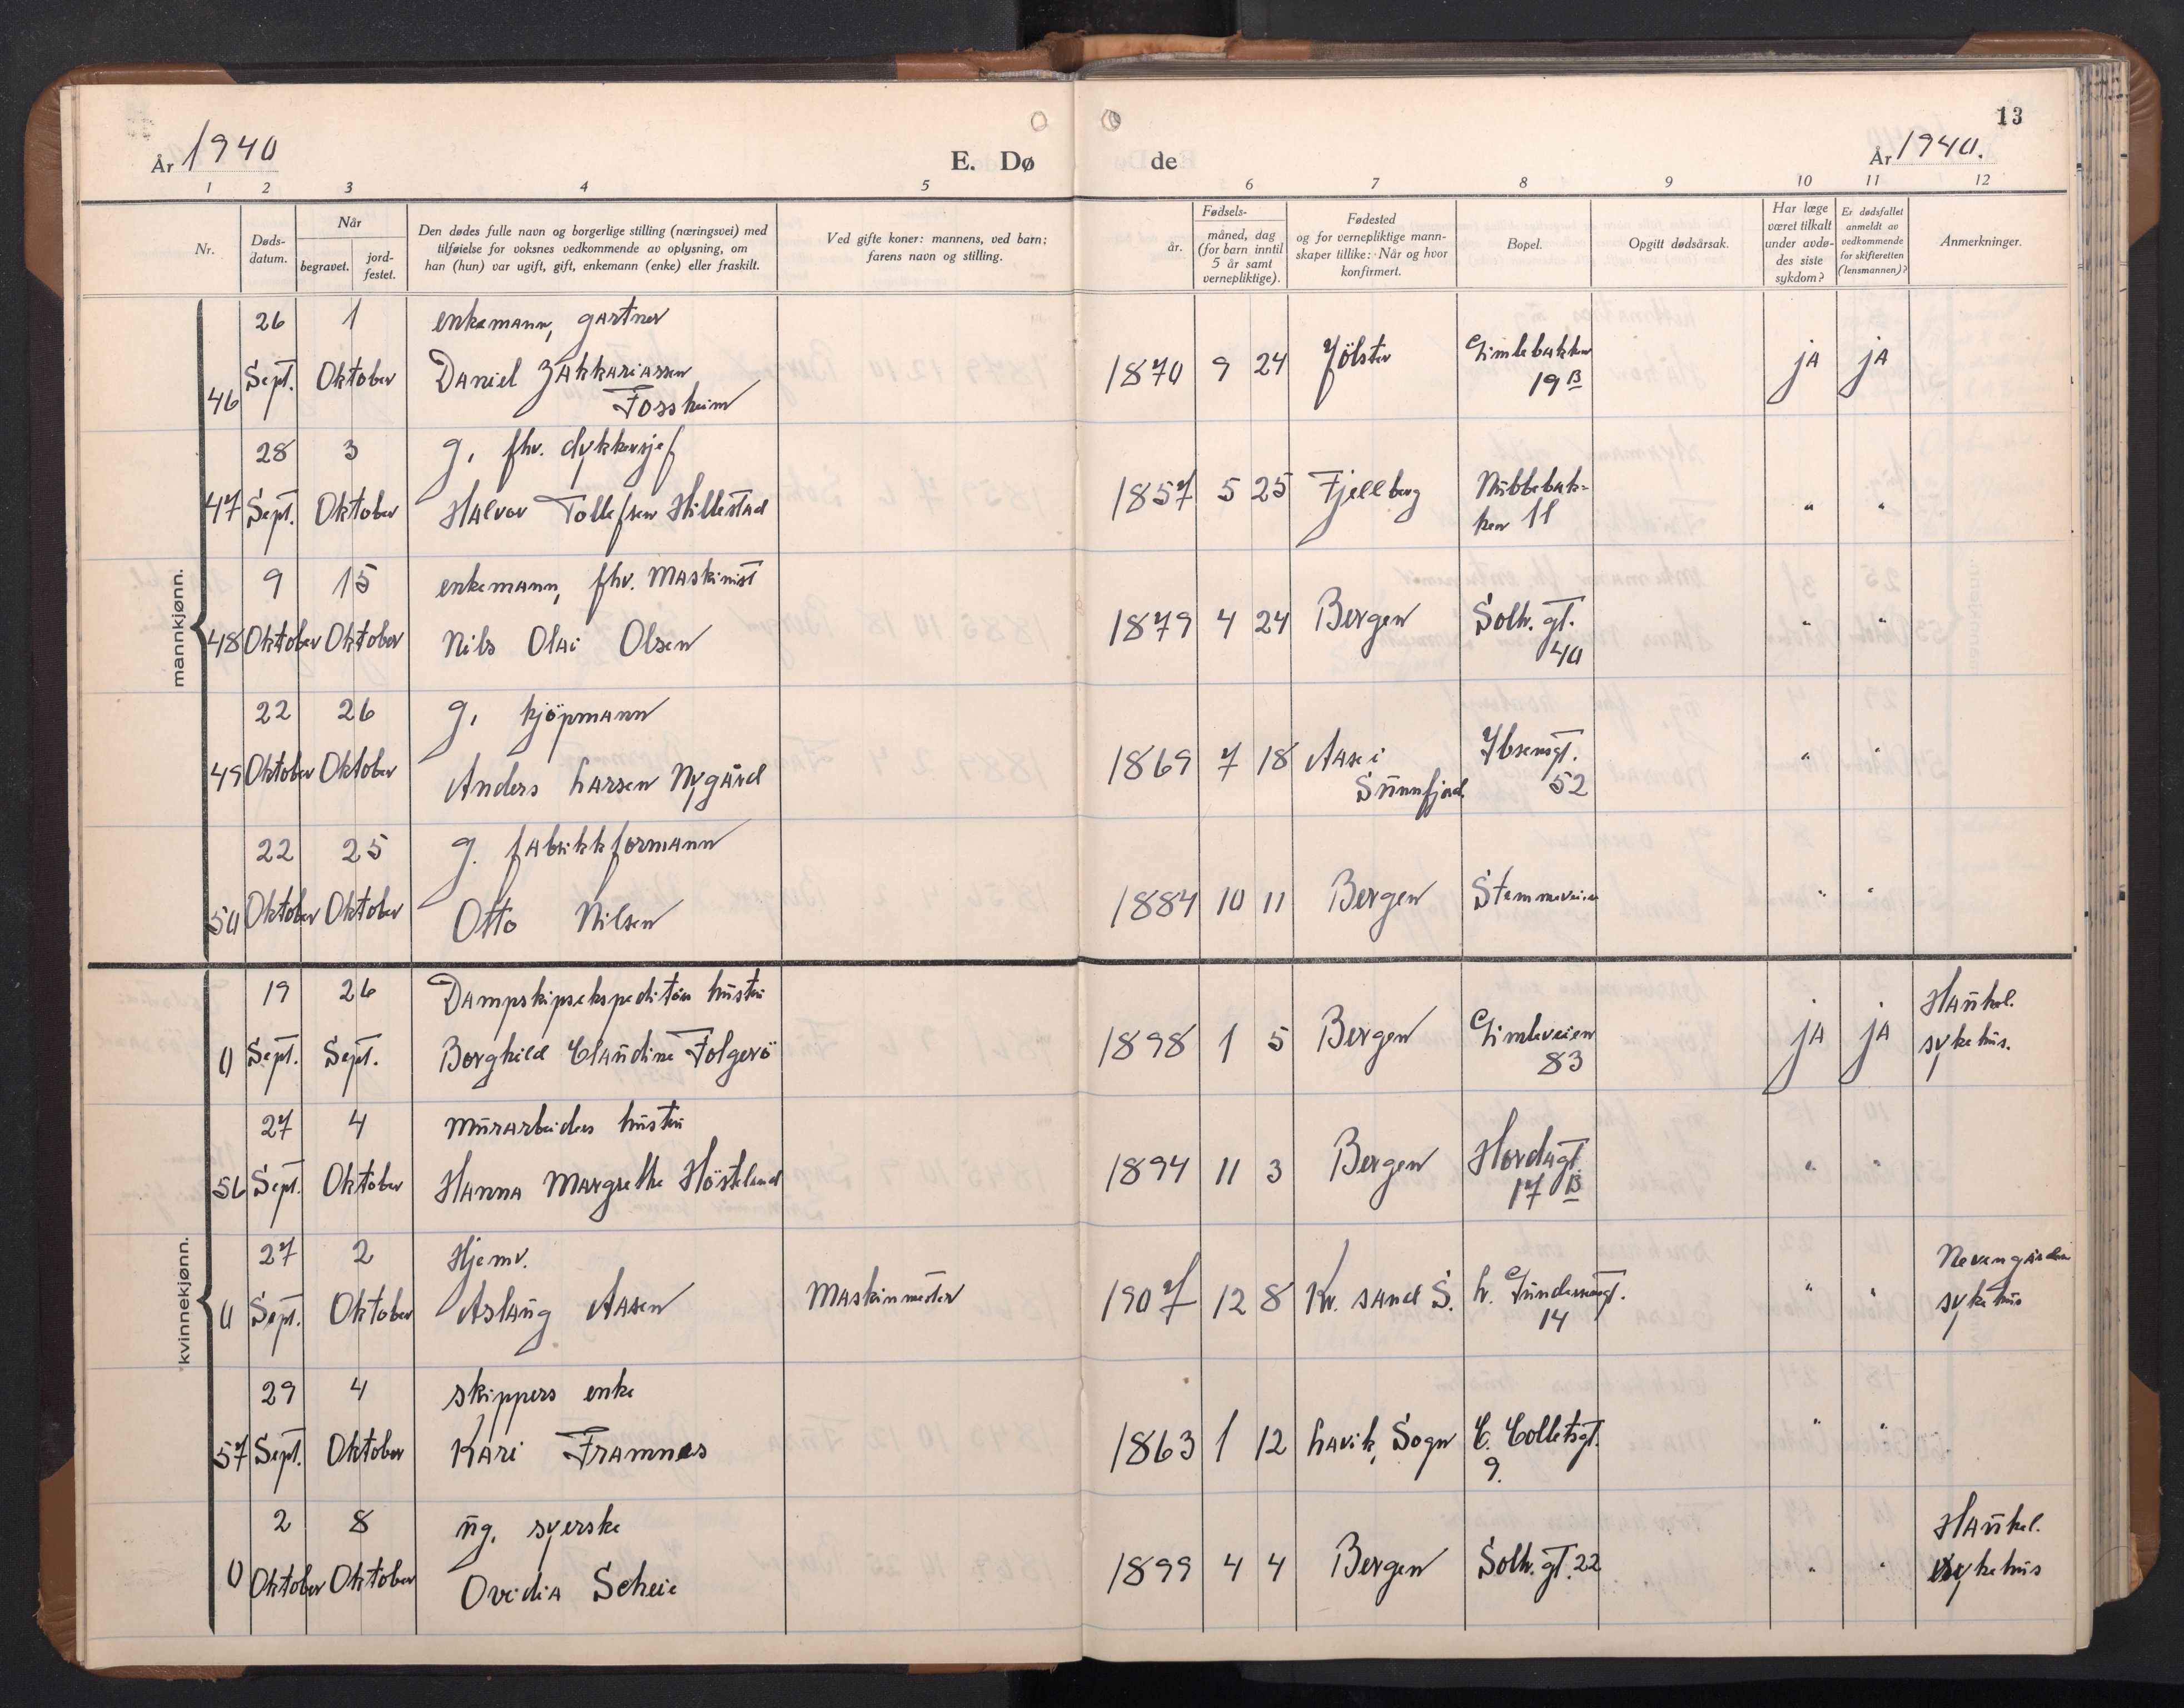 År 1940
E. Dø de
13
År 1940.
1 2 3 4 5 6 7 8 9 10 11 12
Nr.
Døds-
datum.
Når
begravet.
jord-
festet.
Den dødes fulle navn og borgerlige stilling (næringsvei) med
tilføielse for voksnes vedkommende av oplysning, om
han (hun) var ugift, gift, enkemann (enke) eller fraskilt.
Ved gifte koner: mannens, ved barn:
farens navn og stilling.
Fødsels-
år.
måned, dag
(for barn inntil
5 år samt
vernepliktige).
Fødested
og for vernepliktige mann-
skaper tillike: Når og hvor
konfirmert.
Bopel.
Opgitt dødsårsak.
Har læge
været tilkalt
under avdø-
des siste
sykdom?
Er dødsfallet
anmeldt av
vedkommende
for skifteretten
(lensmannen)?
Anmerkninger.
mannkjønn.
26 1 enkemann, gartner
46 Sept. Oktober Daniel Zakkariassen 1870 9 24 Jölster Gimlebakken
Fossheim 19 B ja ja
28 3 g. fhv. dykkersjef
47 Sept. Oktober Halvor Tollefsen Hillestad 1857 5 25 Fjellberg Nubbebak-
ken 11 " "
9 15 enkemann, fhv. Maskinist
48 Oktober Oktober Nils Olai Olsen 1879 4 24 Bergen Solh. gt.
40 " "
22 26 g. kjöpmann
49 Oktober Oktober Anders Larsen Nygård 1869 7 18 Aase i Ibsensgt.
Sünnfjord. 52 " "
22 25 g. fabrikkformann
50 Oktober Oktober Otto Nilsen 1884 10 11 Bergen Stemmeveien " "
kvinnekjønn.
19 26 Dampskipsekspeditörs hüstrü
0 Sept. Sept. Borghild Claudine Folgerö 1898 1 5 Bergen Gimleveien
83 ja ja Haükel.
sykehüs.
27 4 Mürarbeiders hüstrü
56 Sept. Oktober Hanna Margrethe Hösteland 1894 11 3 Bergen Hordagt.
17 B " "
27 2 Hjemv.
0 Sept. Oktober Aslaüg Aasen Maskinmester 1907 12 8 Kr. sand S. L. Gündersensgt.
14 " " Nevengården
sykehüs
29 4 skippers enke
57 Sept. Oktober Kari Framnes 1863 1 12 Lavik, Sogn C. Colletsgt.
9. " "
2 8 üg. syerske
0 Oktober Oktober Ovidia Scheie 1899 4 4 Bergen Solh. gt. 22 " " Haükel.
sykehüs